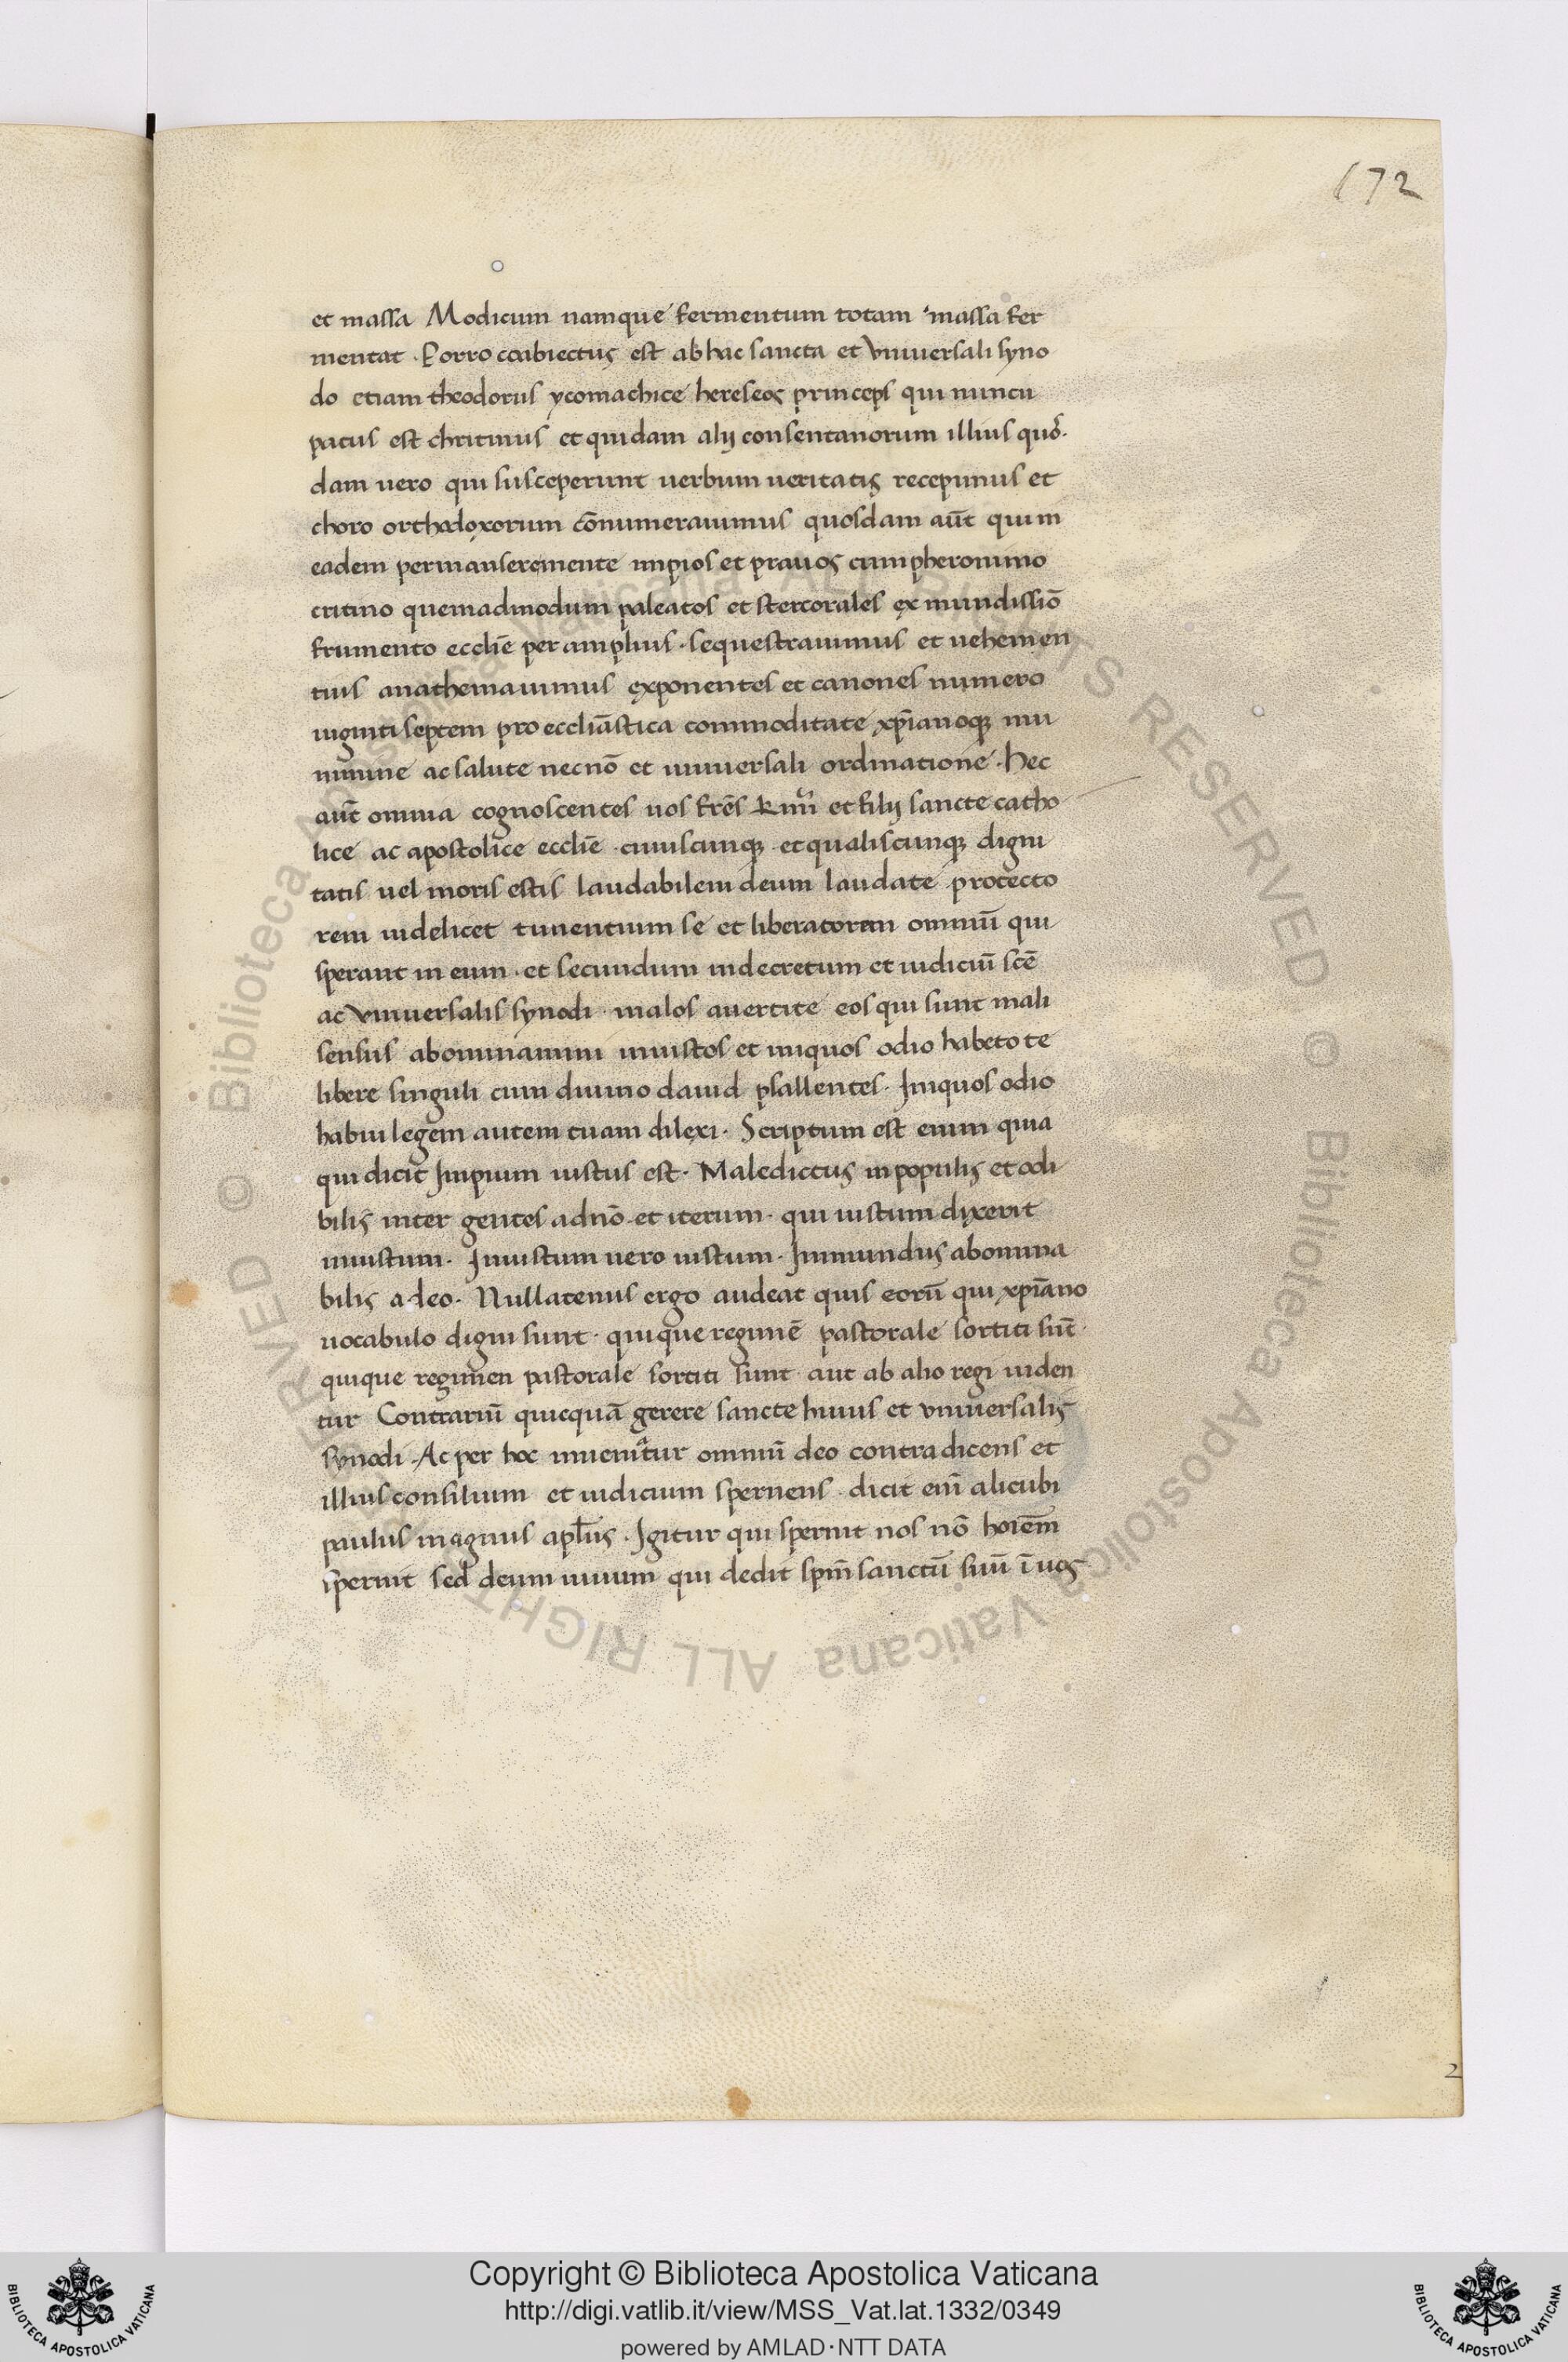 172
et massa Modicum namque fermentum totam massa fer
mentat · Porro coabiectus est ab hac sancta et vniuersali syno
do etiam theodorus ycomachice hereseos princeps qui nuncu
patus est chritinus et quidam alij consentanorum illius quo᷒·
dam uero qui susceperunt uerbum ueritatis recepimus et
choro orthodoxorum cōnumerauimus quosdam aūt qui in
eadem permanseremente impios et prauos cum pheronimo
critino quemadmodum paleatos et stercorales ex mundissiō
frumento eccliē per amplius · sequestrauimus et uehemen
tius anathemauimus exponentes et canones numero
uiginti septem pro eccliāstica commoditate xp̄ianoqꝫ mu
nimine ac salute necnō et uniuersali ordinatione · hec
aūt omnia cognoscentes uos frēs et filij sancte catho
lice ac apostolice eccliē · cuiuscunqꝫ et qualiscunqꝫ digni
tatis uel moris estis laudabilem deum laudate protecto
rem uidelicet timentium se et liberatorem omniū qui
sperant in eum · et secundum indecretum et iudiciū scē
ac vniuersalis synodi · malos auertite eos qui sunt mali
sensus abominamini iniustos et iniquos odio habeto te
libere singuli cum diuino dauid psallentes · Iniquos odio
habui legem autem tuam dilexi · Scriptum est enim quia
qui dicit Impium iustus est · Maledictus in populis et odi
bilis inter gentes adnō et iterum · qui iustum dixerit
iniustum · Iniustum uero iustum · Immundus abomina
bilis a deo · Nullatenus ergo audeat quis eorū qui xpīano
uocabulo digni sunt · quique regimē pastorale sortiti sūt ·
quique regimen pastorale sortiti sunt aut ab alio regi uiden
tur Contrariū quicquā gerere sancte huius et vniuersalis
synodi · Ac per hoc inuenitur omniū deo contradicens et
illius consilium et iudicium spernens · dicit eni᷒ alicubi
paulus magnus apl̄us · Igitur qui spernit nos nō hoiem̄
spernit sed deum uiuum qui dedit spm̄ sanctū suū ī uos
2
© Biblioteca Apostolica Vaticana ALL RIGHTS RESERVED © Biblioteca Apostolica Vaticana ALL RIGHTS RESERVED
Copyright © Biblioteca Apostolica Vaticana
http://digi.vatlib.it/view/MSS_Vat.lat.1332/0349
powered by AMLAD·NTT DATA
BIBLIOTECA APOSTOLICA VATICANA
BIBLIOTECA APOSTOLICA VATICANA